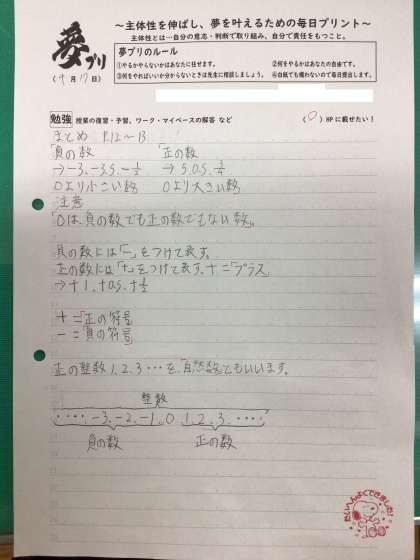 夢プリ
～主体性を伸ばし、夢を叶えるための毎日プリント～
主体性とは…自分の意志・判断で取り組み、自分で責任をもつこと。
夢プリのルール
①やるかやらないかはあなたに任せます。 ②何をやるかはあなたの自由です。
③何をやればいいか分からないときは先生に相談しましょう。 ④白紙でも構わないので毎日提出します。
(9月17日)
勉強 授業の復習・予習、ワーク・マイペースの解答 など (○)HPに載せたい!
まとめ P.12～13
「負の数 「正の数
→-3.-3.5.-1/2 →5.0.5.3/4
0より小さい数 0より大きい数
注意
「0は、負の数でも正の数でもない数」。
負の数には「-」をつけて表す。
正の数には「+」をつけて表す。+=「プラス」
→+1.+0.5.+1/2
+=「正の符号」
-=「負の符号」
正の整数1.2.3…を、「自然数」ともいいます。
整数
‥‥-3.-2.-1.0 1.2.3.‥‥
負の数 正の数
たいへんよくできました!
100